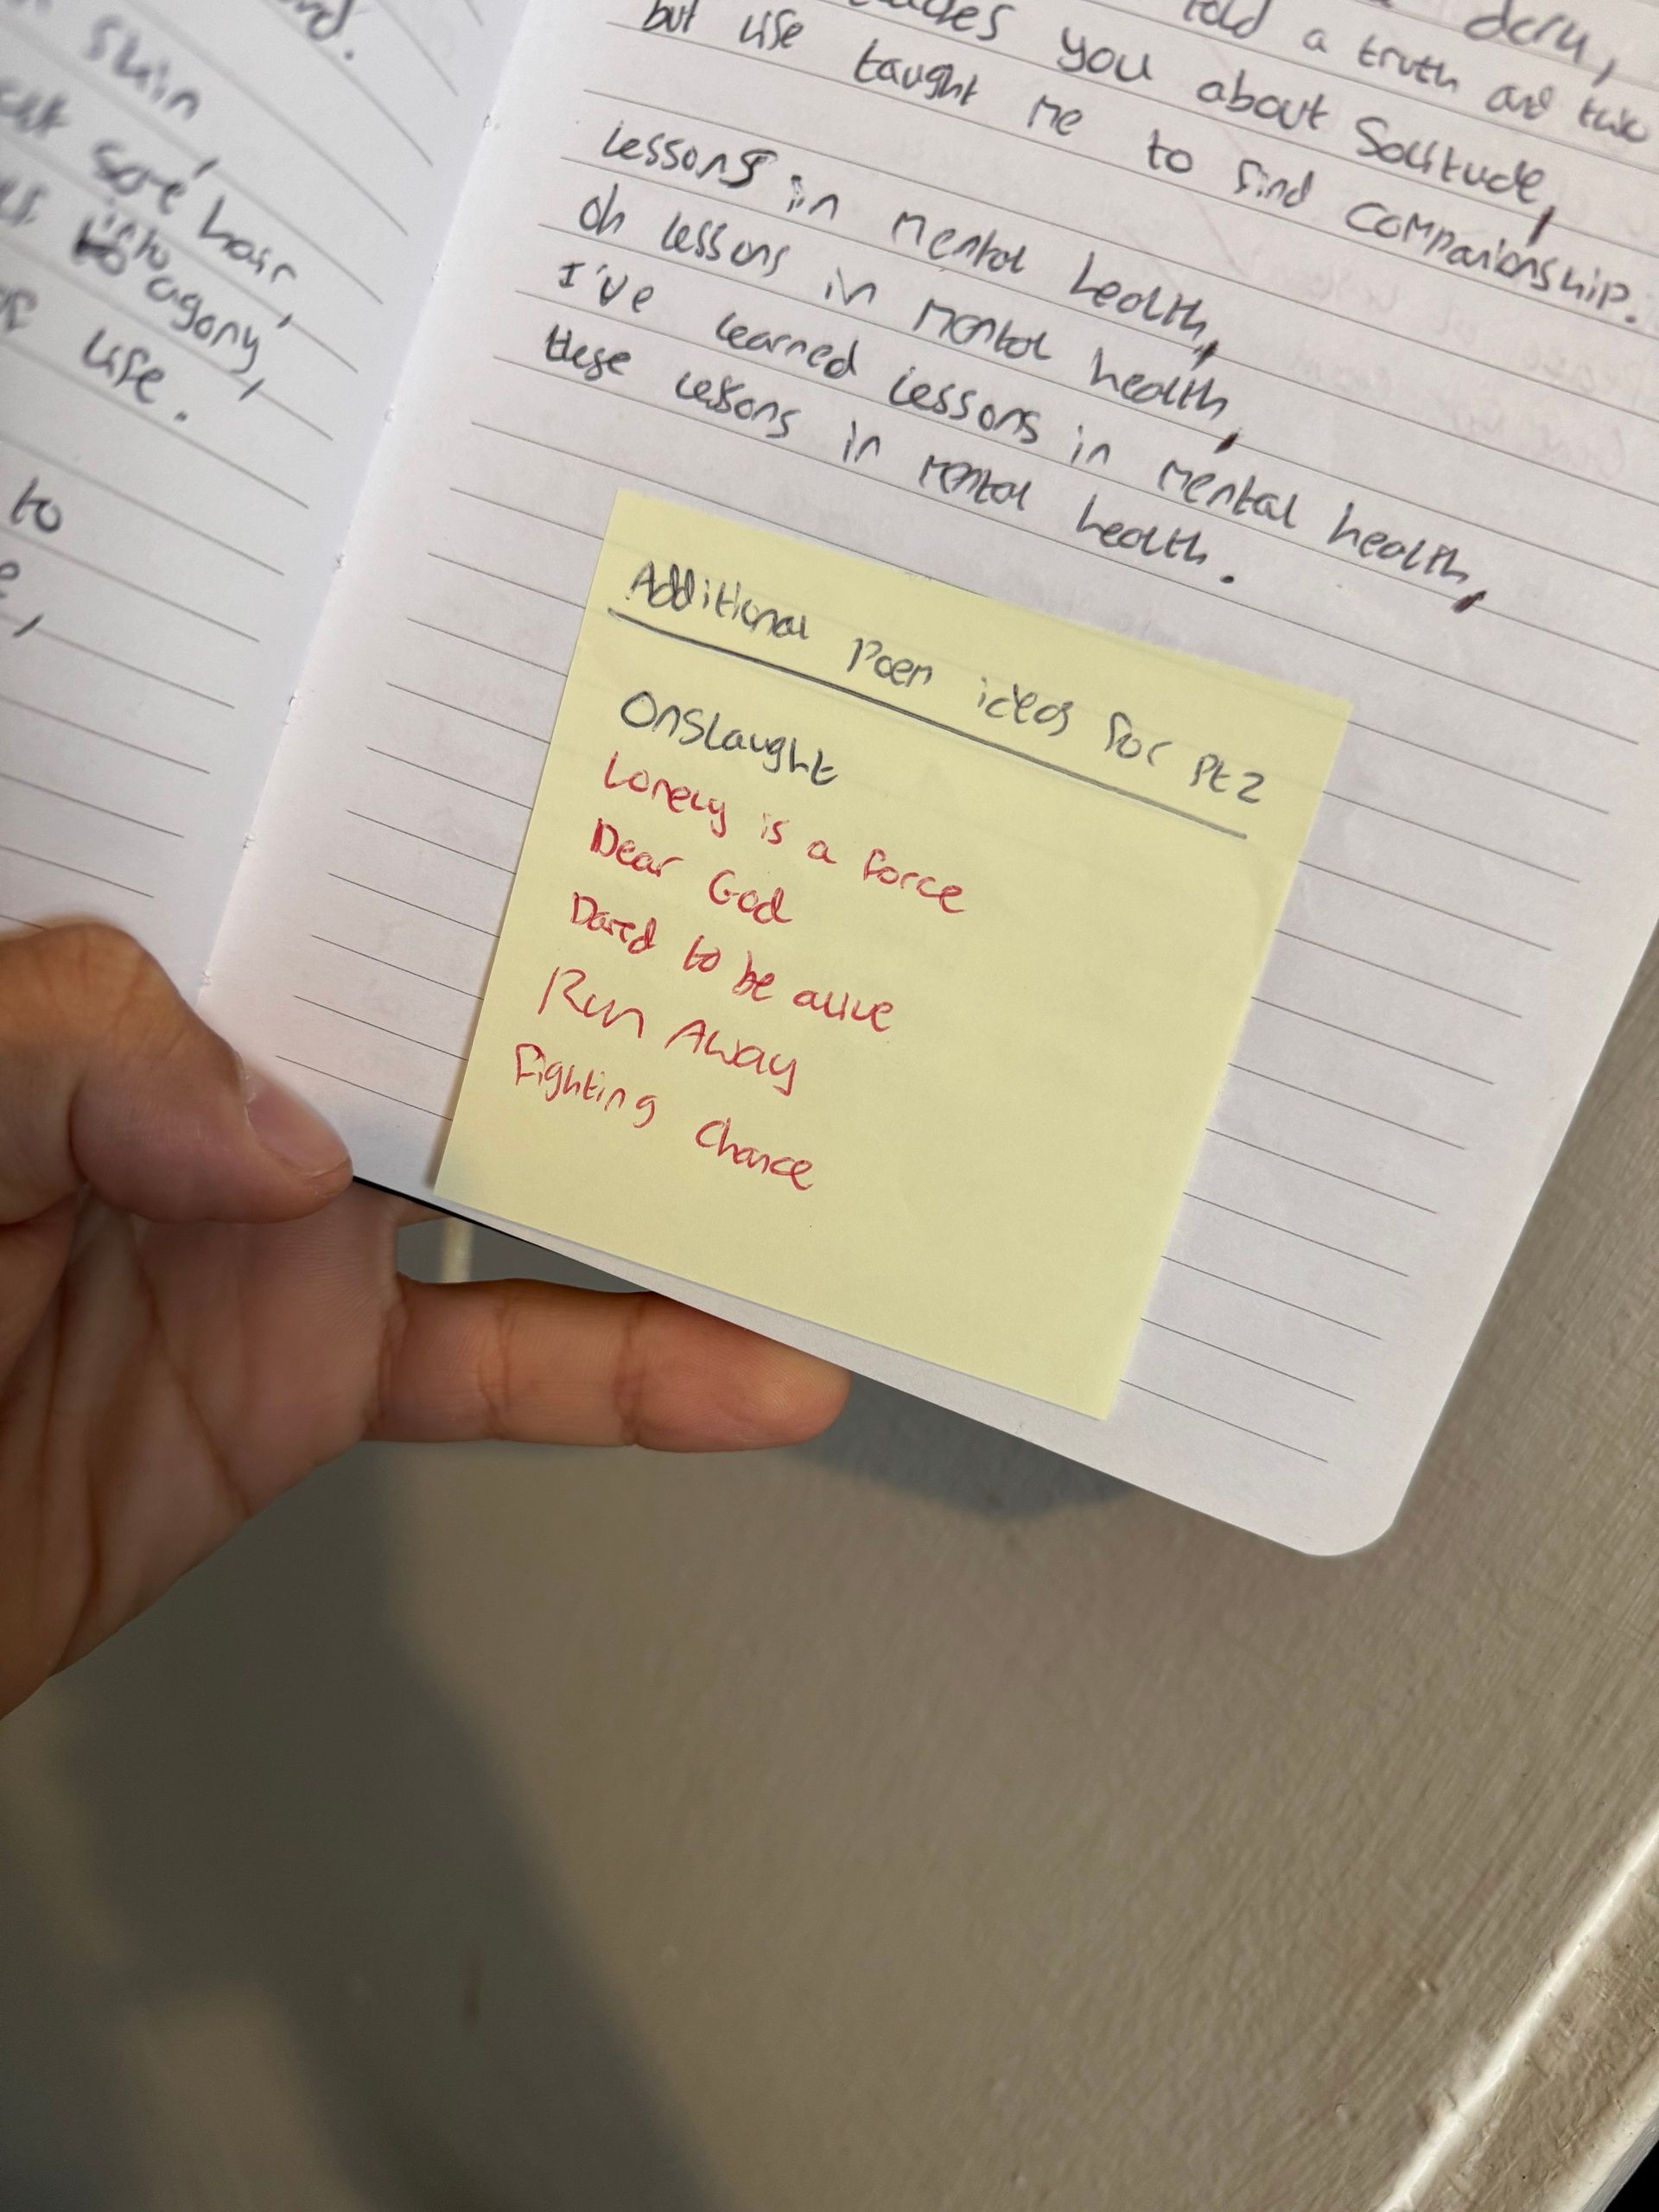 skin,
hair,
agony,
life.
to
told a truth and two
you about Solitude,
but life taught me to find companionship.
Lessons in mental health,
oh lessons in mental health,
I've learned lessons in mental health,
these lessons in mental health.
Additional Poem ideas for Pt 2
Onslaught
Lonely is a force
Dear God
Dared to be alive
Run Away
Fighting Chance